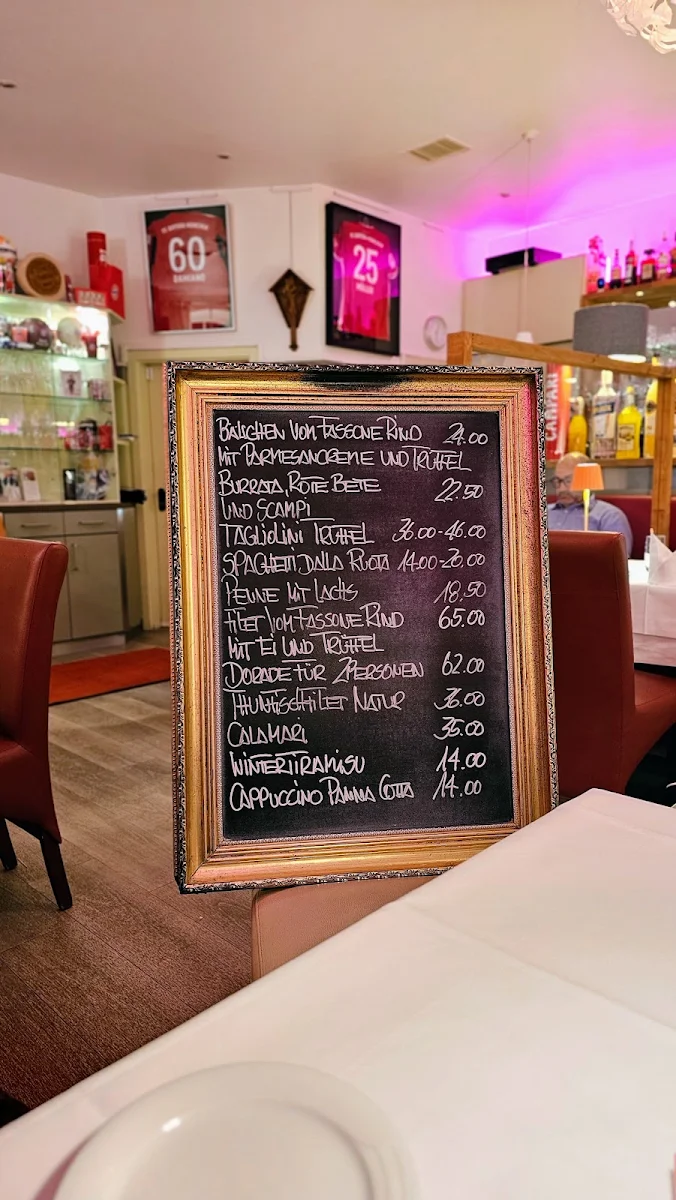 60
DAMIANO
25
MÜLLER
CAMPARI
BÄLLCHEN VOM FASSONE RIND 24.00
MIT PARMESANCREME UND TRÜFFEL
BURRATA, ROTE BETE 22.50
UND SCAMPI
TAGLIOLINI TRÜFFEL 36.00-46.00
SPAGHETTI DALLA RUOTA 14.00-20.00
PENNE MIT LACHS 18.50
FILET VOM FASSONE RIND 65.00
MIT EI UND TRÜFFEL
DORADE FÜR 2 PERSONEN 62.00
THUNFISCHFILET NATUR 36.00
CALAMARI 35.00
WINTERTIRAMISU 14.00
CAPPUCCINO PANNA COTTA 14.00